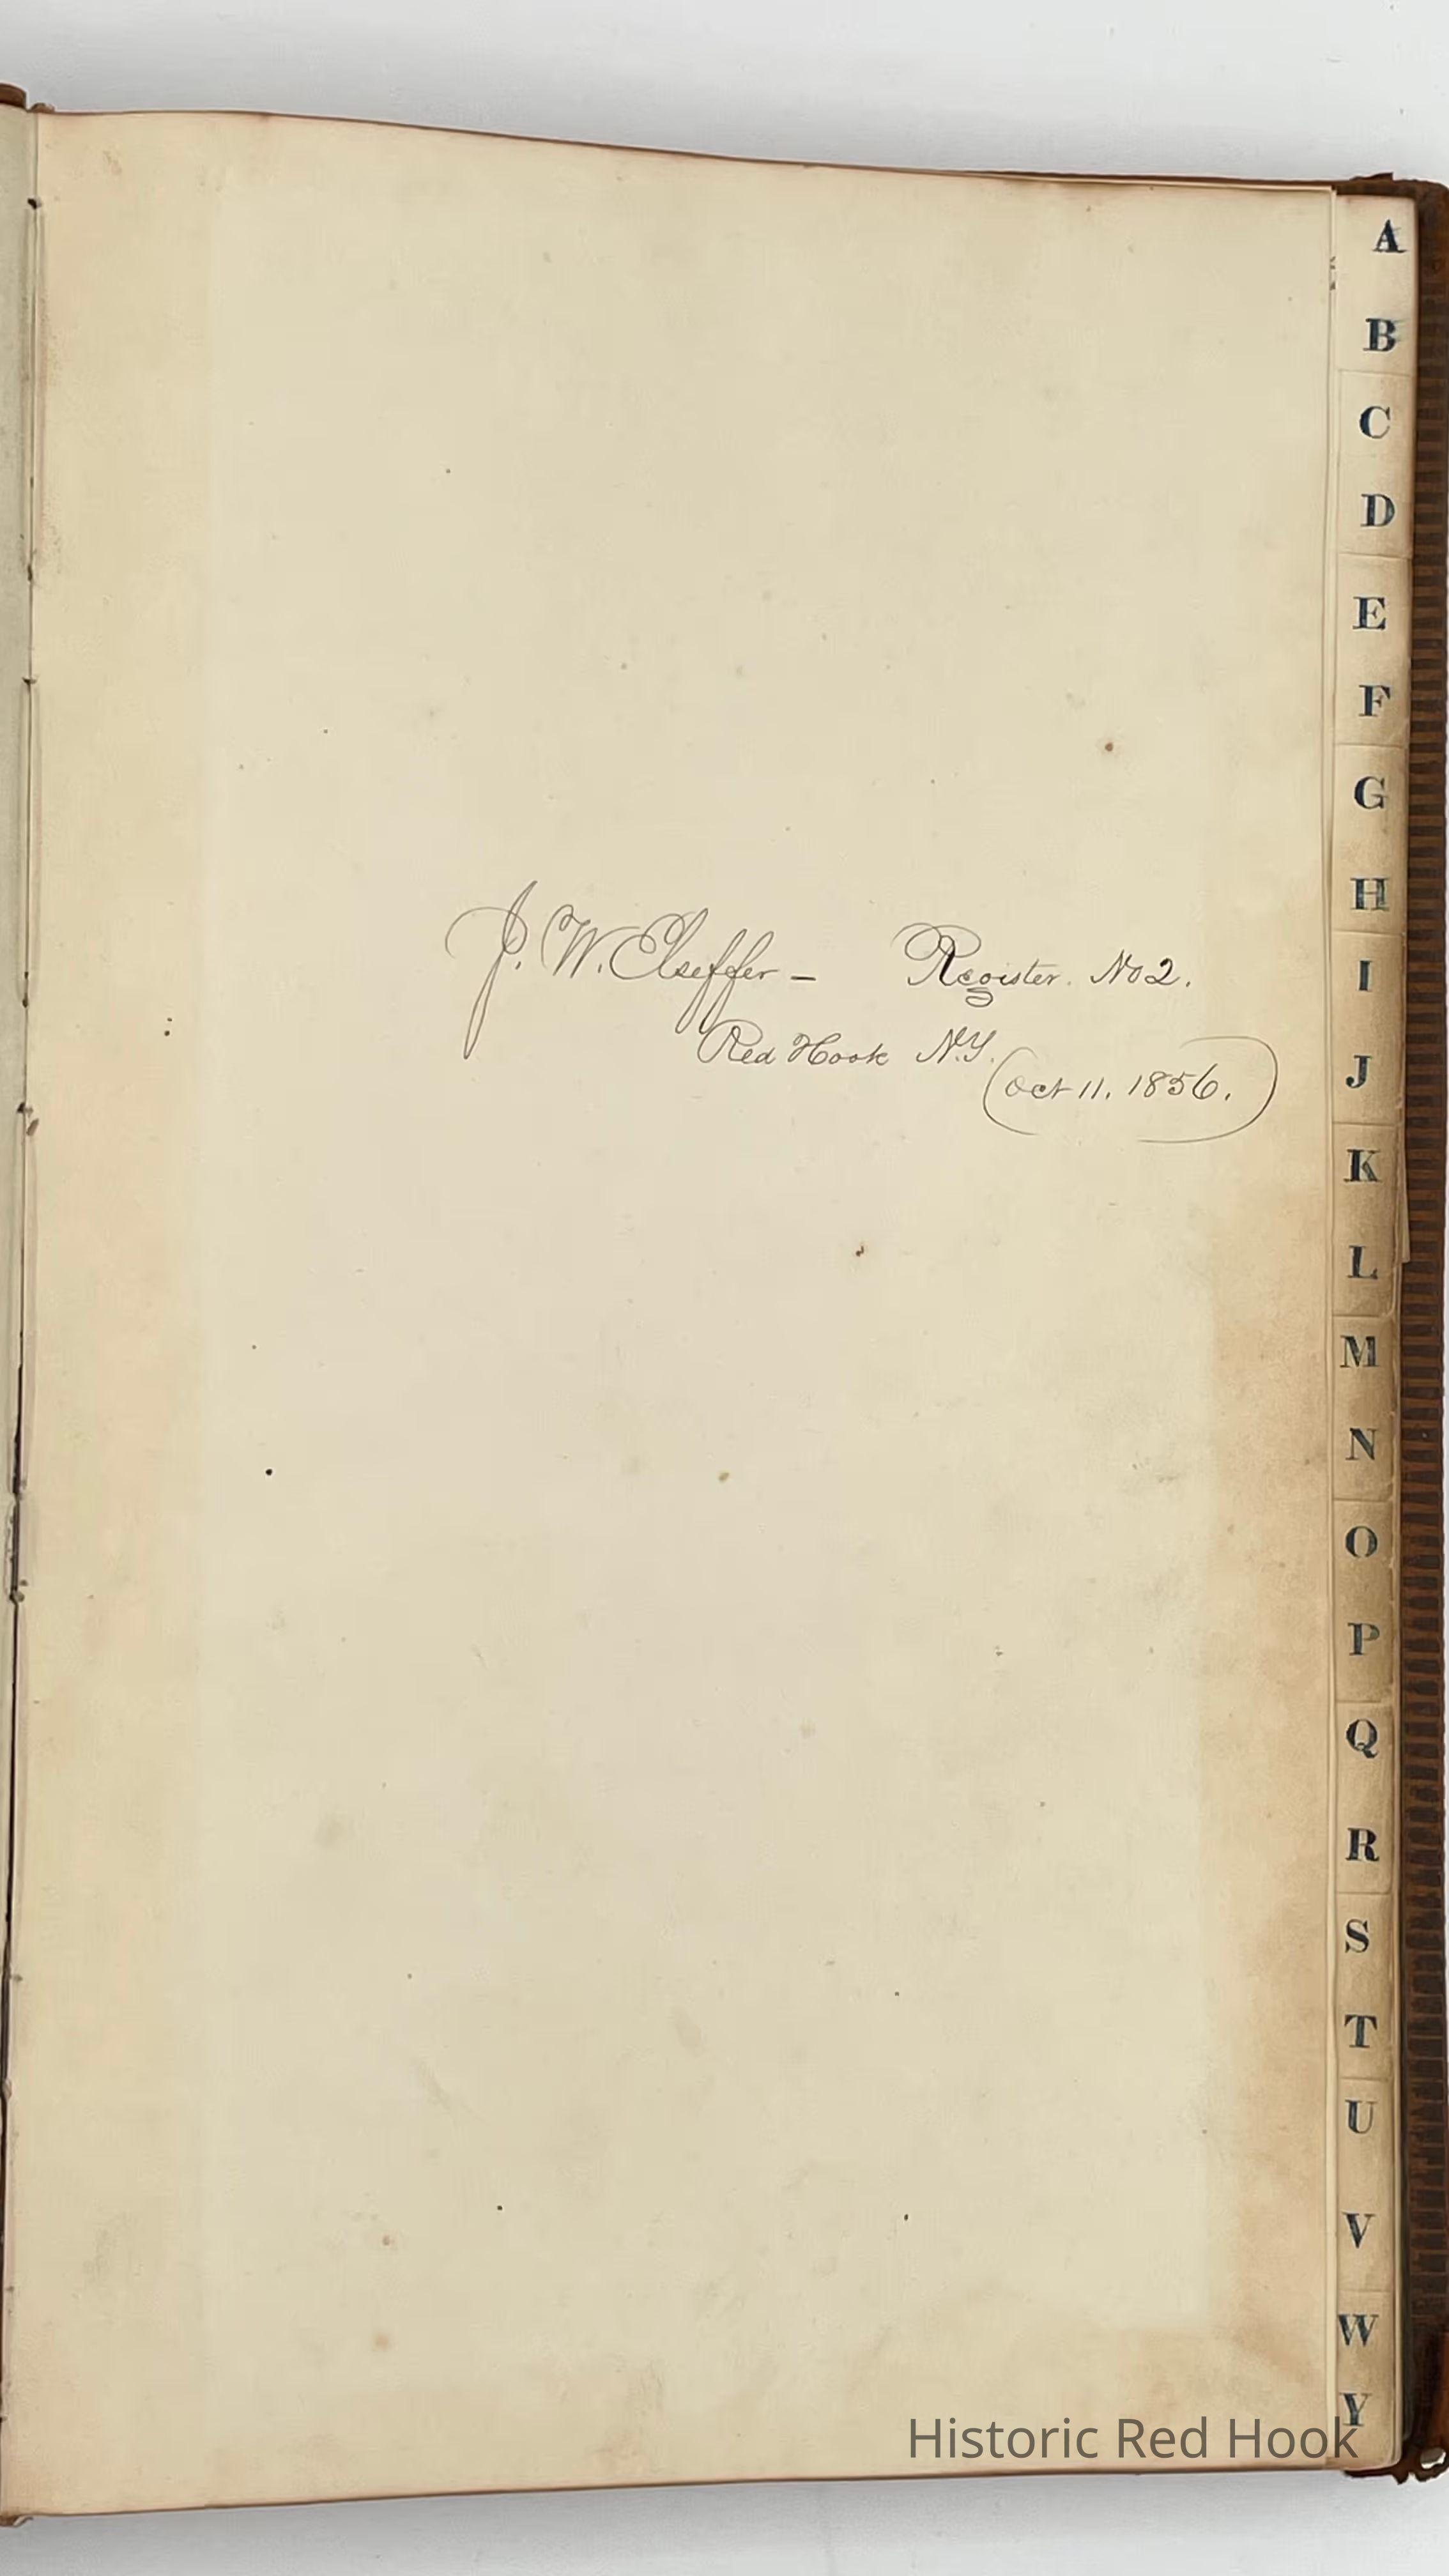 J. W. Elseffer – Register. No 2.
Red Hook N.Y.
(Oct 11. 1856.)
A
B
C
D
E
F
G
H
I
J
K
L
M
N
O
P
Q
R
S
T
U
V
W
Y
Historic Red Hook